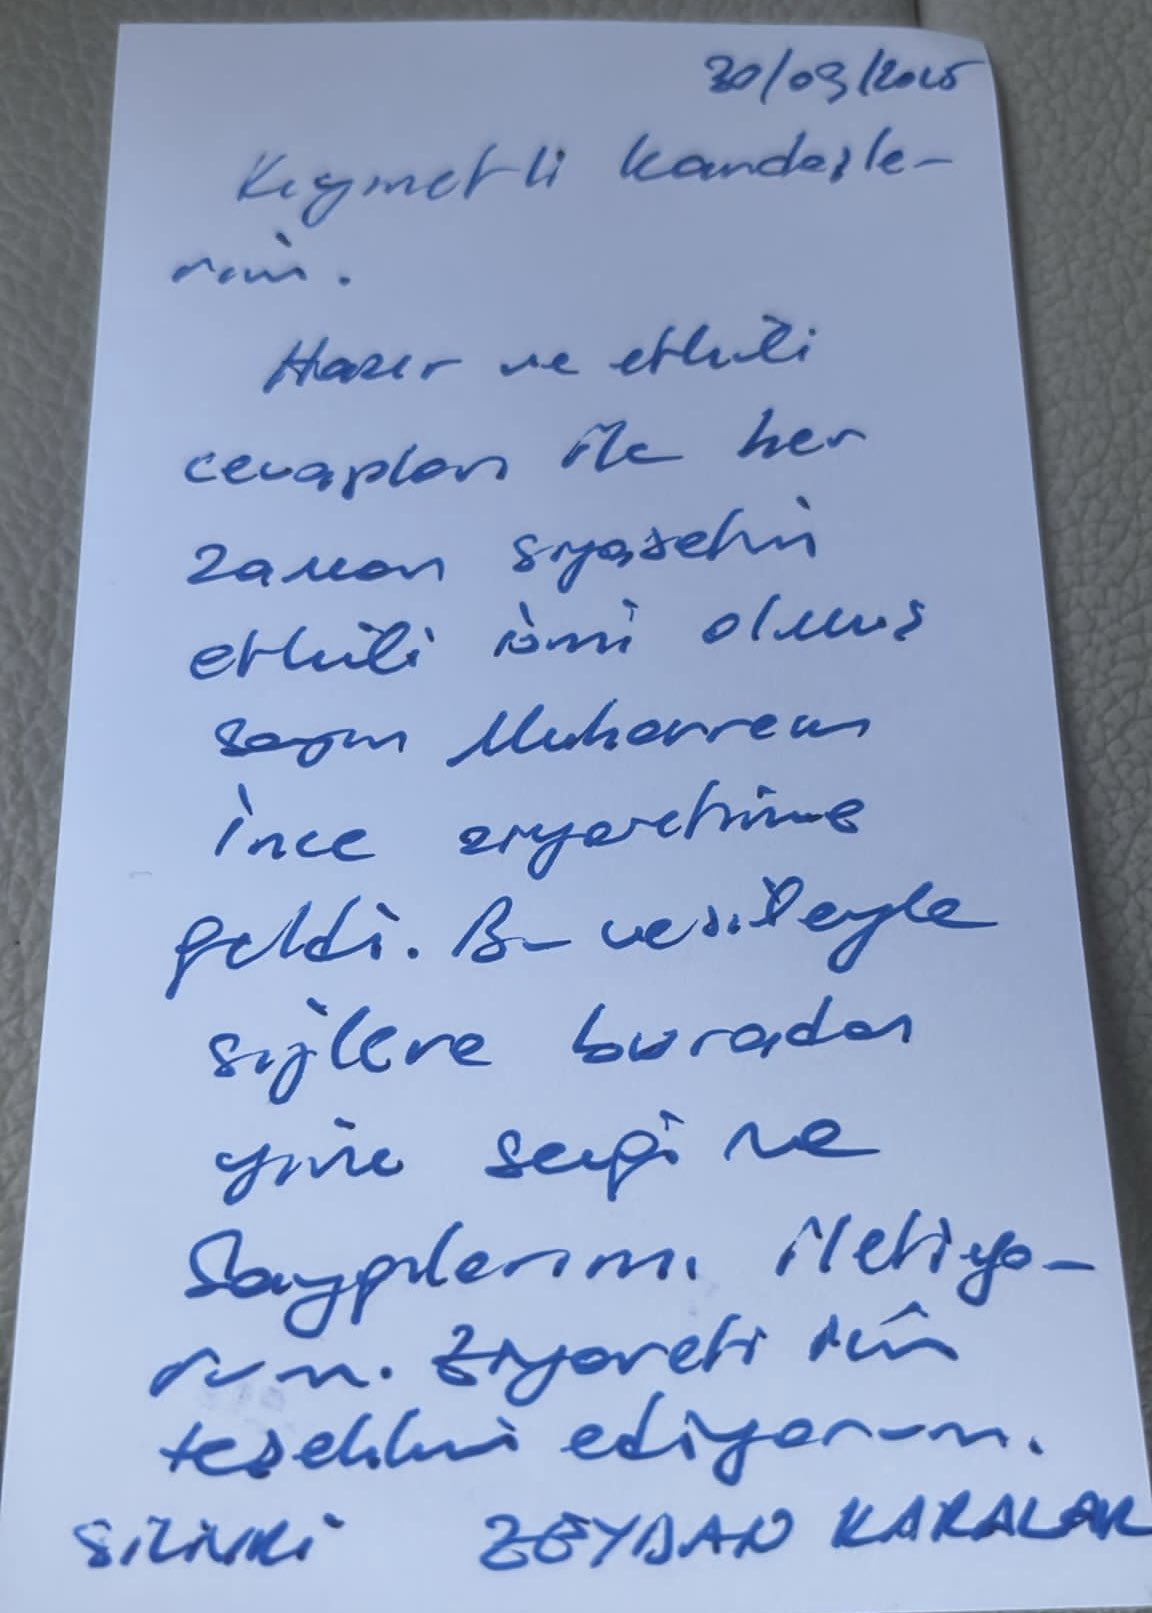 30/09/2025
Kıymetli kardeşle-
rim.
Hazır ve etkili
cevapları ile her
zaman siyasetin
etkili ismi olmuş
sayın Muharrem
İnce ziyaretime
geldi. Bu vesileyle
sizlere buradan
yine sevgi ve
saygılarımı iletiyo-
rum. Ziyareti için
teşekkür ediyorum.
SİLİVRİ ZEYDAN KARALAR